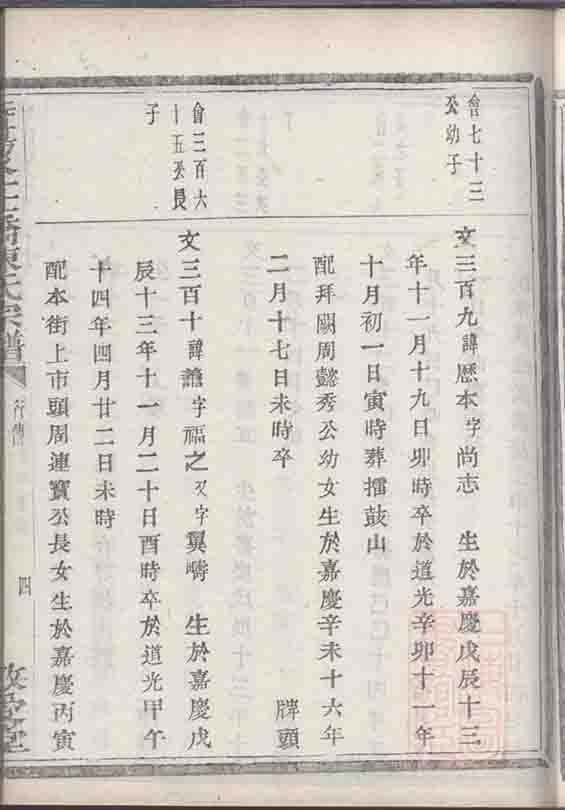 會七十三
公幼子
文三百九諱歷本字尚志 生於嘉慶戊辰十三
年十一月十九日卯時卒於道光辛卯十一年
十月初一日寅時葬擂鼓山
配拜闕周懿秀公幼女生於嘉慶辛未十六年
二月十七日未時卒 牌頭
會三百六
十五公長
子
文三百十諱譫字福之又字翼疇 生於嘉慶戊
辰十三年十一月二十日酉時卒於道光甲午
十四年四月廿二日未時
配本街上市頭周連寶公長女生於嘉慶丙寅
氏宗譜
四